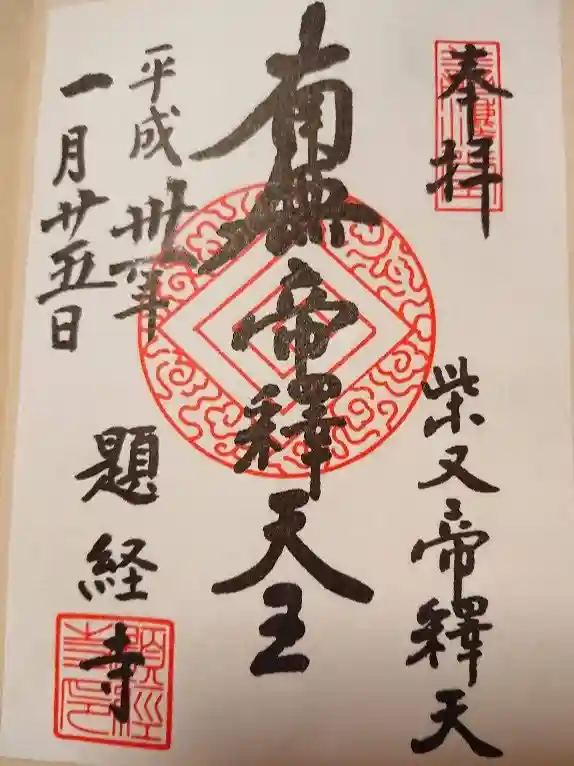 奉拝
柴又帝釋天
南無帝釋天王
平成卅一年
一月廿五日
題経寺
題經寺印